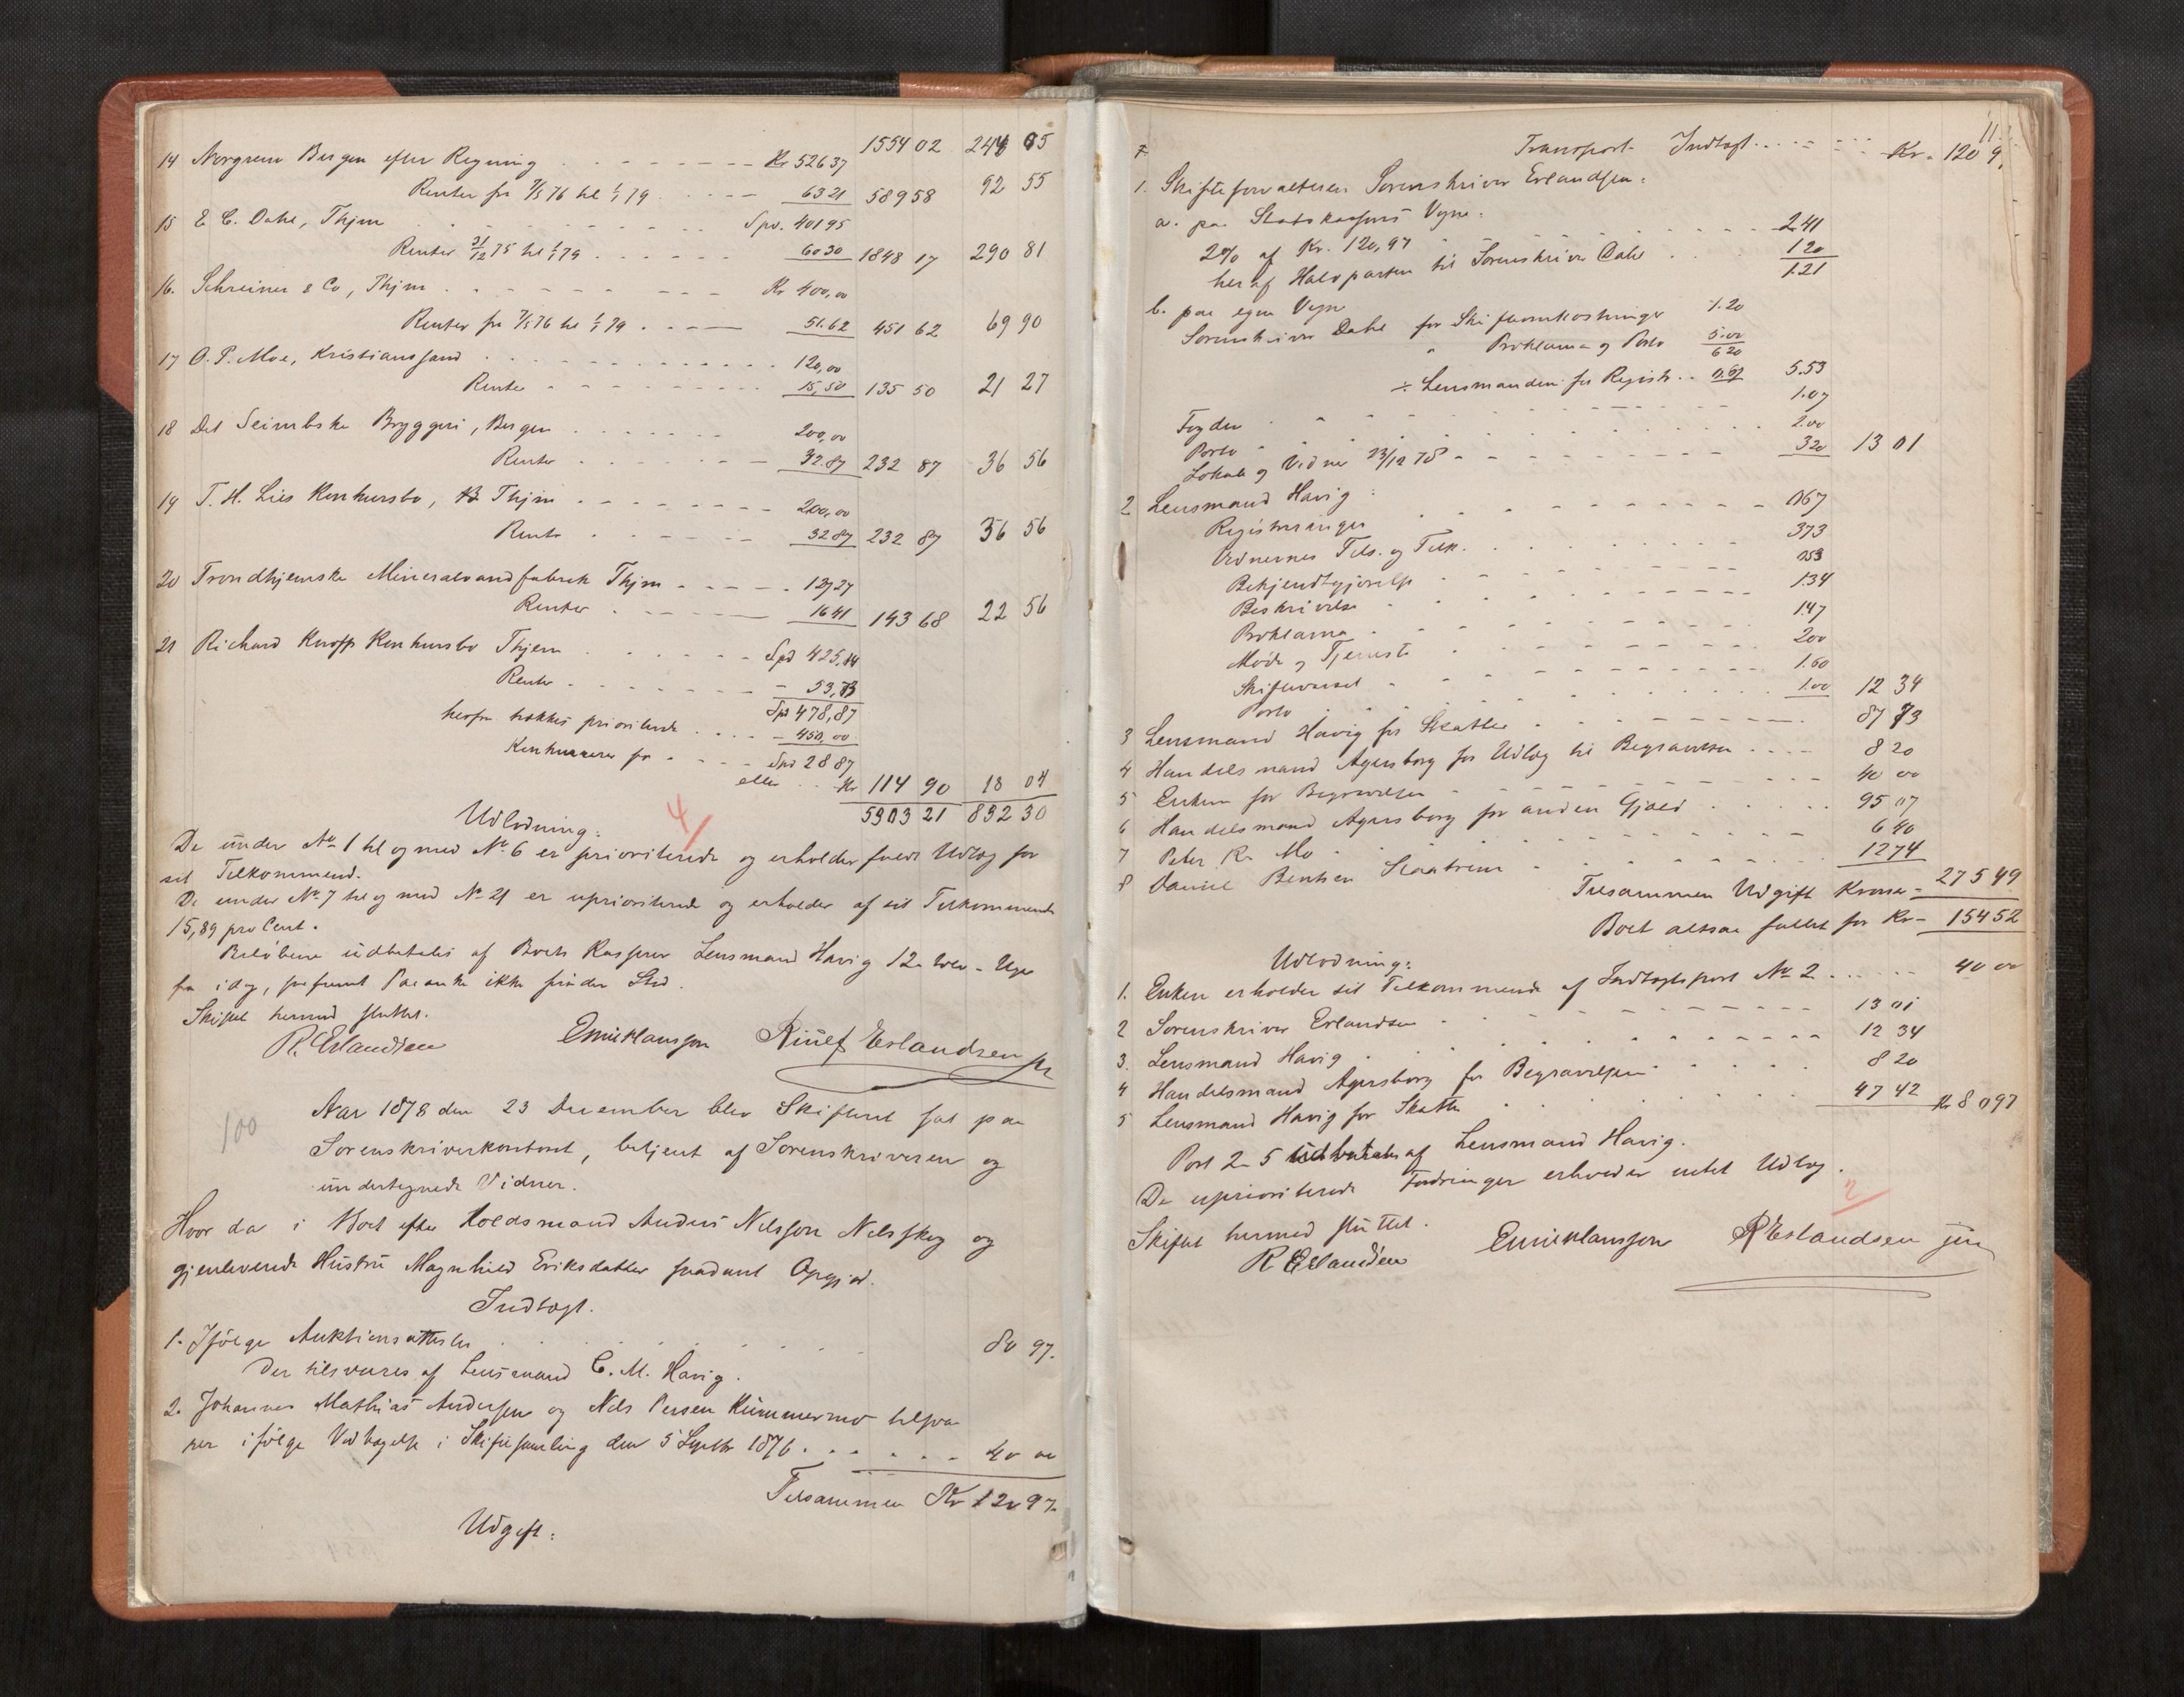 1554 02 244 65
14 Norgrens Bergen efter Regning Kr 526 37
Renter fra 7/5 76 til 1/1 79 63 21 589 58 92 55
15 E C. Dahl, Thjm Spd. 401 95
Renter 31/12 75 til 1/1 79 60 30 1848 17 290 81
16. Schreiner & Co, Thjm Kr 400,00
Renter fra 7/5 76 til 1/1 79 51.62 451 62 69 90
17 O. P. Moe, Kristianssand 120,00
Renter 15,50 135 50 21 27
18 Det Seimbske Bryggeri, Bergen 200,00
Renter 32.87 232 87 36 56
19 T. H. Lies Konkursbo, Thjm 200,00
Renter 32 87 232 87 36 56
20 Trondhjemske Mineralvandfabrik Thjm 127 27
Renter 16 41 143 68 22 56
21 Richard Knoff Konkursbo Thjem Spd 425,14
Renter 53,73
Spd 478,87
herfra trækkes prioriterede 450,00
Konkurrerer for Spd 28 87
eller Kr 114 90 18 04
5303 21 832 30
Udlodning:
4/
De under No 1 til og med No 6 er prioriterede og erholder fuldt Udlæg for
sit Tilkommende.
De under No 7 til og med No 21 er uprioriterede og erholder af sit Tilkommende
15,89 pro Cent.
Beløbene udbetales af Boets Kasserer Lensmand Havig 12 - tolv - Uger
fra idag, saafremt Paaanke ikke finder Sted.
Skiftet hermed sluttet.
R. Erlandsen Emil Klausson Rinef Erlandsen jr
100
Aar 1878 den 23 December blev Skifteret sat paa
Sorenskriverkontoret, betjent af Sorenskriveren og
undertegnede Vidner.
Hvor da i Boet efter Holdsmand Anders Nilssen Nilsskog og
gjenlevende Hustru Magnhild Eriksdatter saadant Opgjød.
Indtægt.
1. Ifølge Auktionsattester 80 97.
der tilsvares af Lensmand C. M. Havig.
2. Johannes Mathias Andersen og Nils Persen Kummermo tilsva
rer ifølge Vedtagelse i Skiftesamling den 5 Septbr 1876 40 00
Tilsammen Kr 120 97.
Udgift:
11.
Transport Indtægt Kr. 120 9
1. Skifteforvalteren Sorenskriver Erlandsen:
a. paa Statskassens Vegne:
2% af Kr. 120,97 2.41
heraf Halvparten til Sorenskriver Dahl 1.20
1.21
b. paa egne Vegne
Sorenskriver Dahl for Skifteomkostninger 1.20
" Proklama og Porto 5.00
6 20
÷ Lensmanden for Registr. 0.67 5.53
Fogden 1.07
Porto 2.00
Lokale og Vidner 23/12 78 3 20 13 01
2 Lensmand Havig:
Registreringer 0 67
Vidnernes Tils. og Tilk. 3 73
Bekjendtgjørelse 0 53
Beskrivelse 1.34
Proklama 1.47
Møde og Tjeneste 2 00
Skiftevarsel 1.60
Porto 1.00 12 34
3 Lensmand Havig for Skatter 87 73
4 Handelsmand Agersborg for Udlæg til Begravelsen 8 20
5 Enken for Begravelsen 40 00
6 Handelsmand Agersborg for anden Gjæld 95 07
7 Peter R. Mo 6 40
8 Daniel Bentsen Slaatrem 12 74
Tilsammen Udgift Kroner 275 49
Boet altsaa fallit for Kr 154 52
Udlodning:
1. Enken erholder sit Tilkommende af Indtægtspost No 2 40 00
2 Sorenskriver Erlandsen 13 01
3. Lensmand Havig 12 34
4 Handelsmand Agersborg for Begravelsen 8 20
5 Lensmand Havig for Skatter 47 42 Kr 8 097
Post 2-5 udbetales af Lensmand Havig.
De uprioriterede Fordringer erholder intet Udlæg.
2/
Skiftet hermed sluttet.
R Erlandsen Emil Klausson R Erlandsen jun